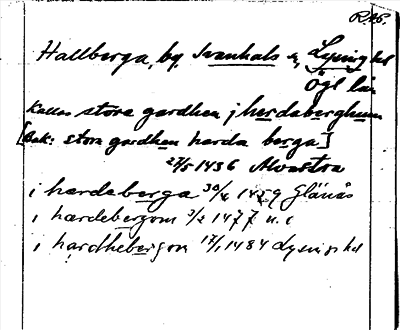 R.A.6.
Hallberga, by, Svanhals sn, Lysings hd
Ögl län
Kallas stora gardhen j herdaberghum
[Bak: stora gardhen harda berga]
27/5 1436 Alvastra
i hærdaberga 30/4 1459 Glänås
i hærdebergom 3/2 1477 u.o
i hardhebergom 17/1 1484 Lysings hd